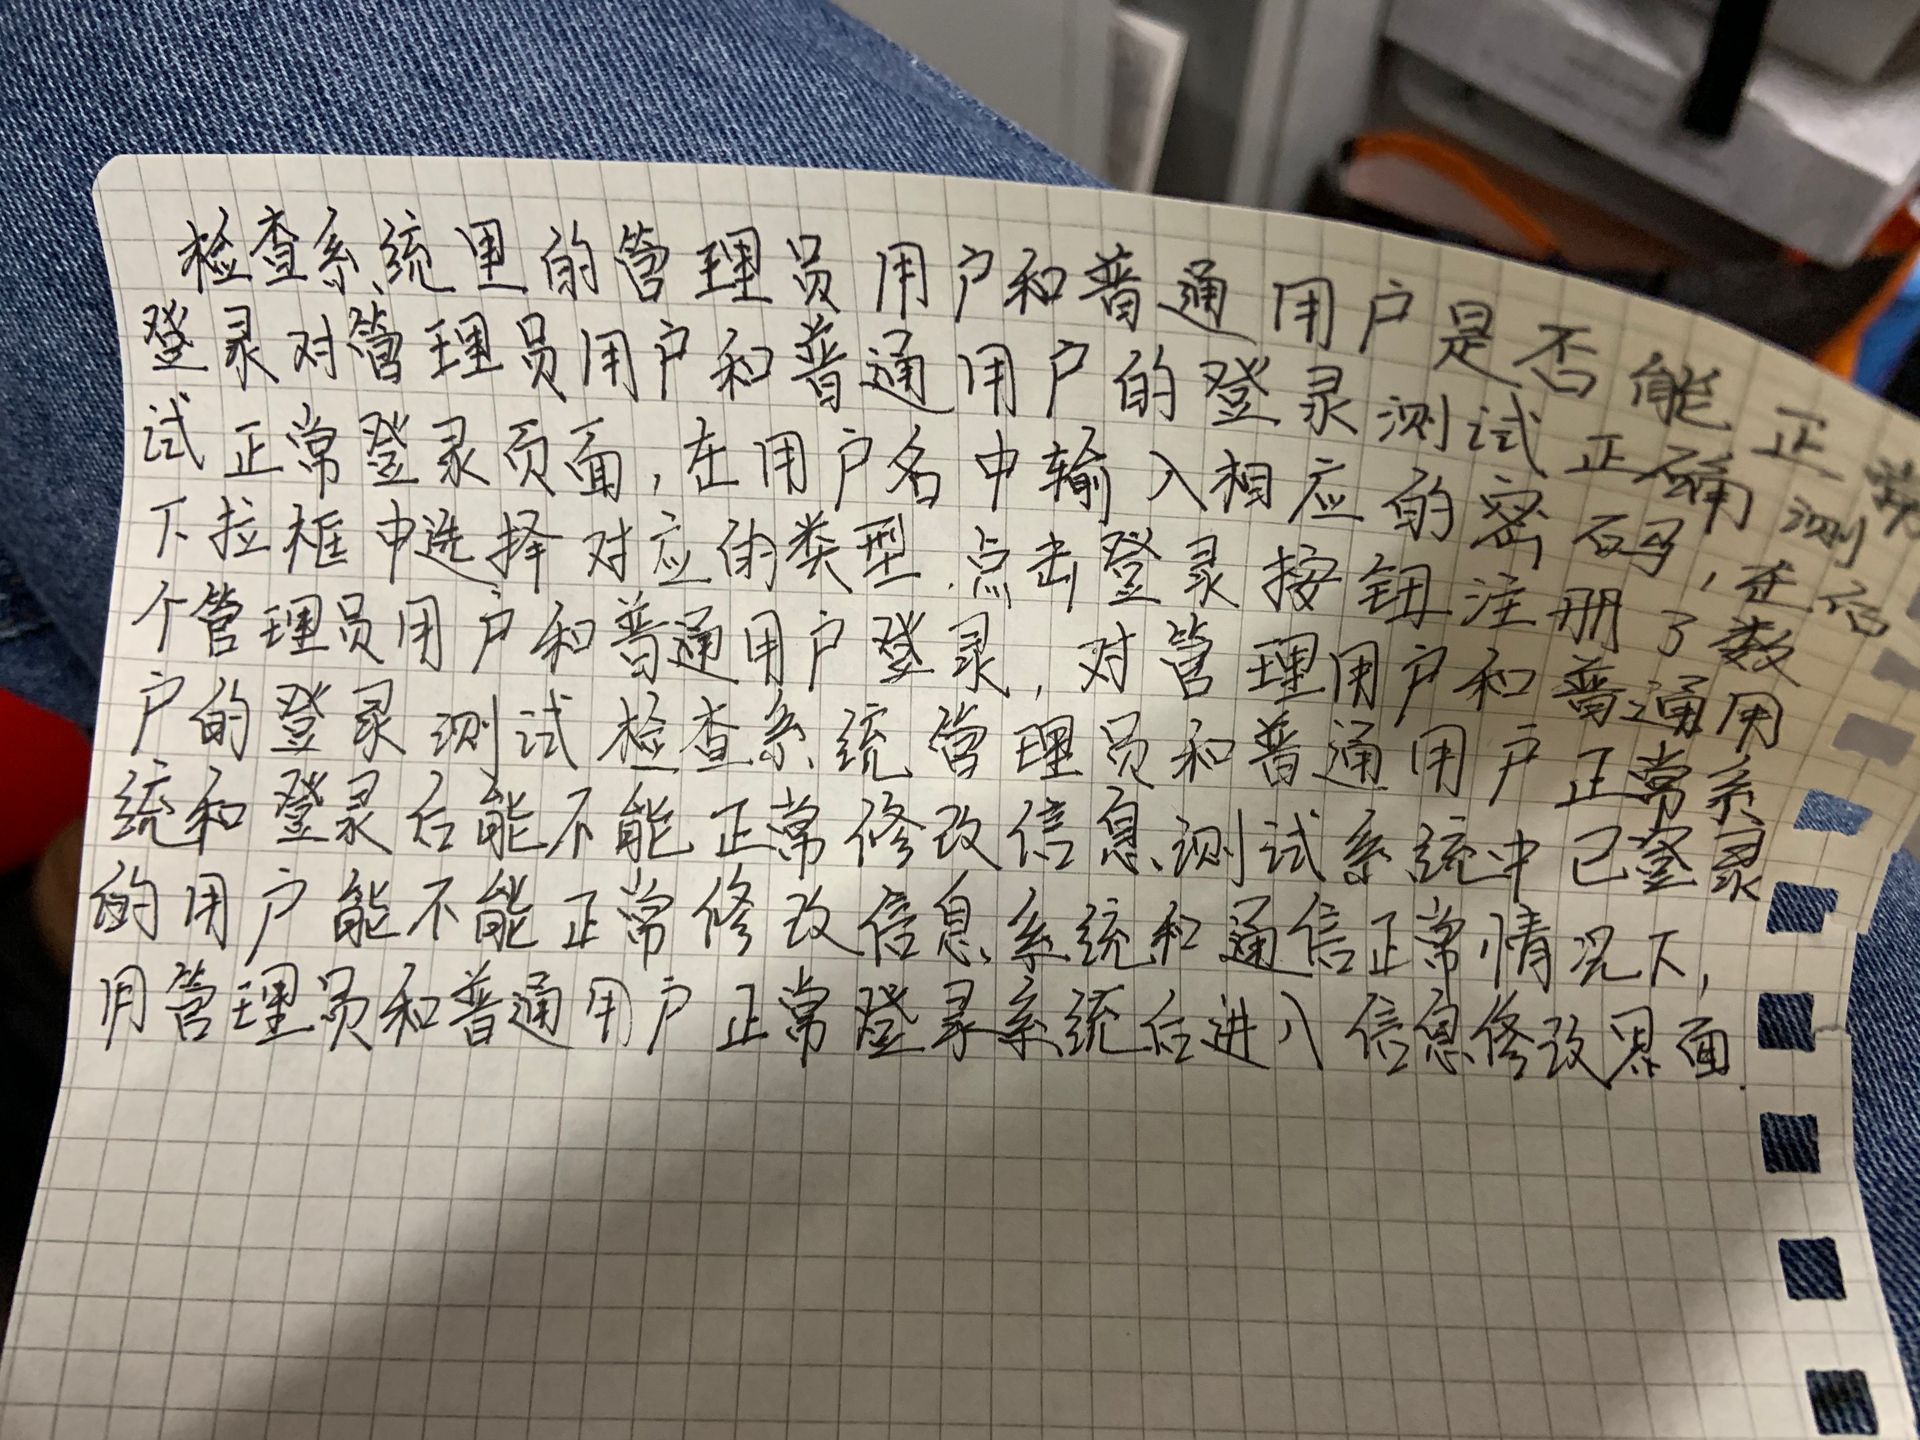 检查系统里的管理员用户和普通用户是否能正常
登录对管理员用户和普通用户的登录测试正确测
试正常登录页面,在用户名中输入相应的密否号,在否
下拉框中选择对应的类型.点击登录按钮注册了数
个管理员用户和普通用户登录,对管理用户和普通用
户的登录测试检查系统管理员和普通用户正常系
统和登录后能不能正常修改信息.测试系统中已登录
的用户能不能正常修改信息.系统和通信正常情况下,
用管理员和普通用户正常登录系统后进入信息修改界面.